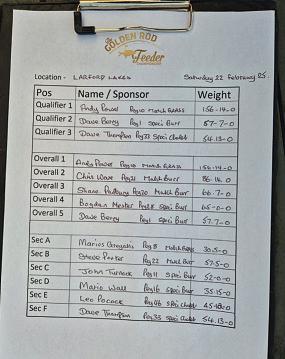 GOLDEN ROD
Feeder
Location - LARFORD LAKES Saturday 22 February 25.
Pos Name / Sponsor Weight
Qualifier 1 Andy Power Peg10 Match Grass 156-14-0
Qualifier 2 Dave Berry Peg1 Speci Burr 57-7-0
Qualifier 3 Dave Thompson Peg33 Speci 54-13-0
Overall 1 Andy Power Peg10 Match Grass 156-14-0
Overall 2 Chris Wave Match Burr 86-14-0
Overall 3 Shane Peg20 Match Burr 66-7-0
Overall 4 Bogdan Speci Burr 65-0-0
Overall 5 Dave Berry Peg1 Speci Burr 57-7-0
Sec A Marius Peg8 Match 30-5-0
Sec B Steve Peg22 Match Burr 57-5-0
Sec C John Turnock Peg11 Speci Burr 52-0-0
Sec D Mario Wall Peg16 Speci Burr 35-15-0
Sec E Leo Pocock Peg46 Speci
Sec F Dave Thompson Peg33 Speci 54-13-0